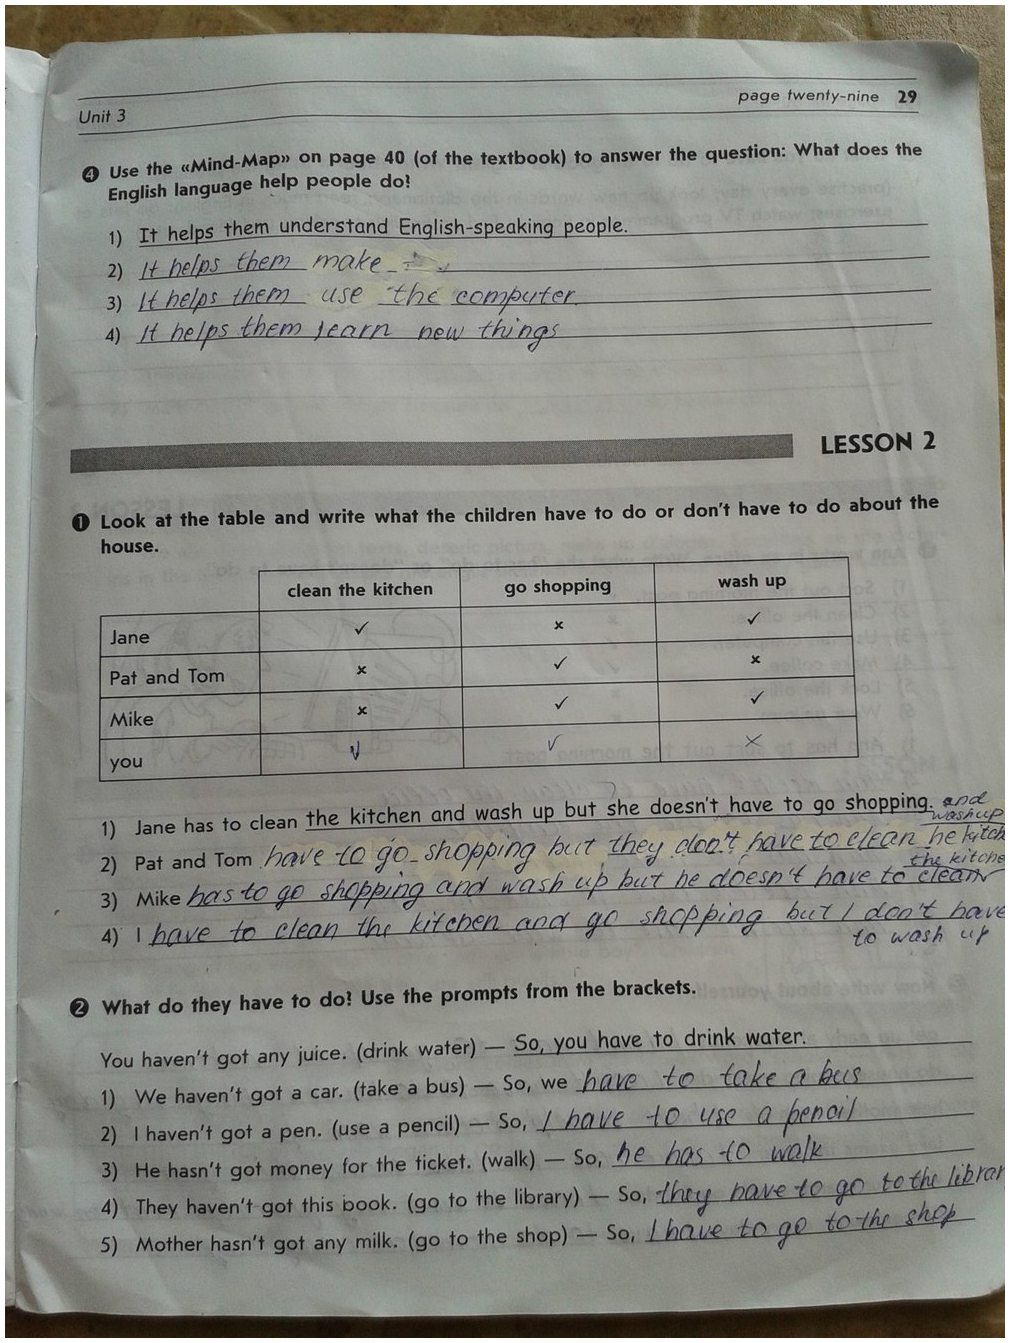 Unit 3
page twenty-nine 29
4 Use the «Mind-Map» on page 40 (of the textbook) to answer the question: What does the
English language help people do?
1) It helps them understand English-speaking people.
2) It helps them make
3) It helps them use the computer.
4) It helps them learn new things
LESSON 2
1 Look at the table and write what the children have to do or don't have to do about the
house.
clean the kitchen go shopping wash up
Jane ✓ x ✓
Pat and Tom x ✓ x
Mike x ✓ ✓
you ✓ ✓ x
1) Jane has to clean the kitchen and wash up but she doesn't have to go shopping.
and
wash up
2) Pat and Tom have to go shopping but they don't have to clean he kitch
the kitche
3) Mike has to go shopping and wash up but he doesn't have to clean
4) I have to clean the kitchen and go shopping but I don't have
to wash up
2 What do they have to do? Use the prompts from the brackets.
You haven't got any juice. (drink water) — So, you have to drink water.
1) We haven't got a car. (take a bus) — So, we have to take a bus
2) I haven't got a pen. (use a pencil) — So, I have to use a pencil
3) He hasn't got money for the ticket. (walk) — So, he has to walk
4) They haven't got this book. (go to the library) — So, they have to go to the librar
5) Mother hasn't got any milk. (go to the shop) — So, I have to go to the shop